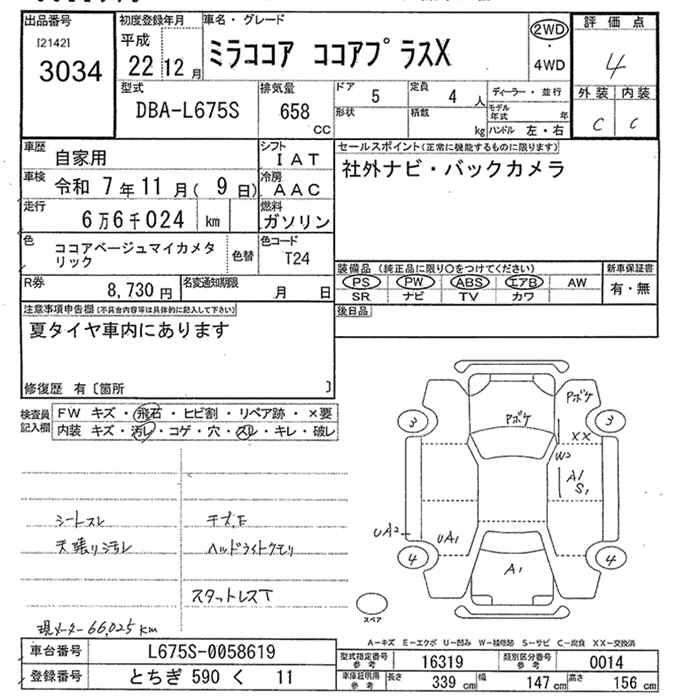 出品番号 初度登録年月 車名・グレード 評価点
[2142] 平成 2WD
3034 22 12月 ミラココア ココアプラスX ・ 4
4WD
型式 排気量 ドア 5 定員 4人 ディーラー・並行 外装 内装
DBA-L675S 658 CC 形状 積載 kg モデル年式 年 C C
ハンドル 左・右
車歴 自家用 シフト IAT セールスポイント(正常に機能するものに限ります)
車検 令和 7年11月(9日) 冷房 AAC 社外ナビ・バックカメラ
走行 6万6千024 km 燃料 ガソリン
色 ココアベージュマイカメタリック 色替 色コード T24
装備品 (純正品に限り○をつけてください) 新車保証書
R券 8,730円 名変通知期限 月 日 PS PW ABS エアB AW 有・無
SR ナビ TV カワ
注意事項申告欄(不具合内容等は具体的に記入して下さい) 後日品
夏タイヤ車内にあります
修復歴 有〔箇所 〕
検査員記入欄 FW キズ・飛石・ヒビ割・リペア跡・×要
内装 キズ・汚レ・コゲ・穴・スレ・キレ・破レ
Pボケ Pボケ
3 3
XX
W2
A1
S1
シートスレ キズ,E
天張り汚レ ヘッドライトクモリ
UA2 UA1
4 4
A1
スタットレスT
スペア
現メーター66,025km
A-キズ E-エクボ U-凹み W-補修跡 S-サビ C-腐食 XX-交換済
車台番号 L675S-0058619 型式指定番号 参考 16319 類別区分番号 参考 0014
登録番号 とちぎ 590 く 11 車庫証明用 参考 長さ 339cm 幅 147cm 高さ 156cm